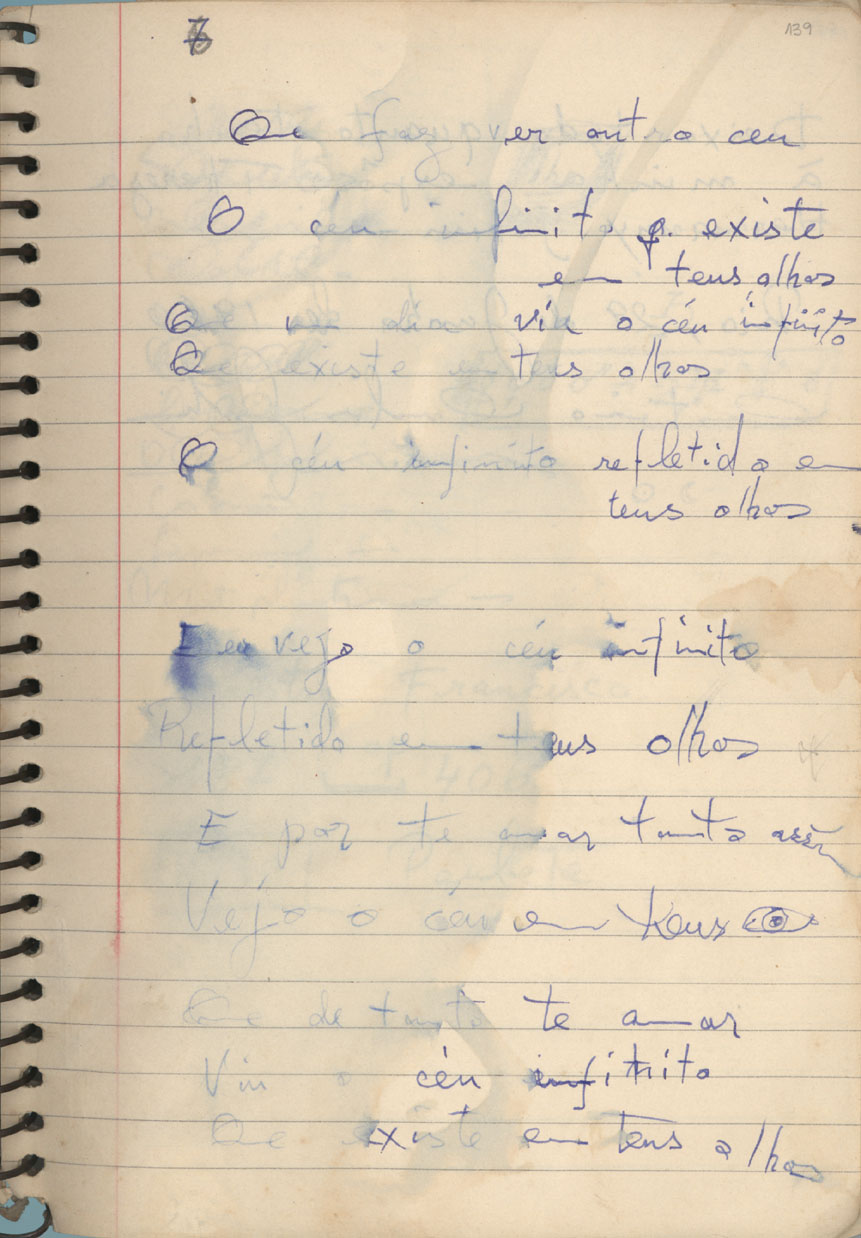 7
139
Que faz ver outro ceu
O céu infinito q. existe
em teus olhos
Que um dia viu o céu infinito
Que existe em teus olhos
O céu infinito refletido em
teus olhos
E eu vejo o céu infinito
Refletido em teus olhos
E por te amar tanto assim
Vejo o céu em teus
Que de tanto te amar
Viu o céu infinito
Que existe em teus olhos